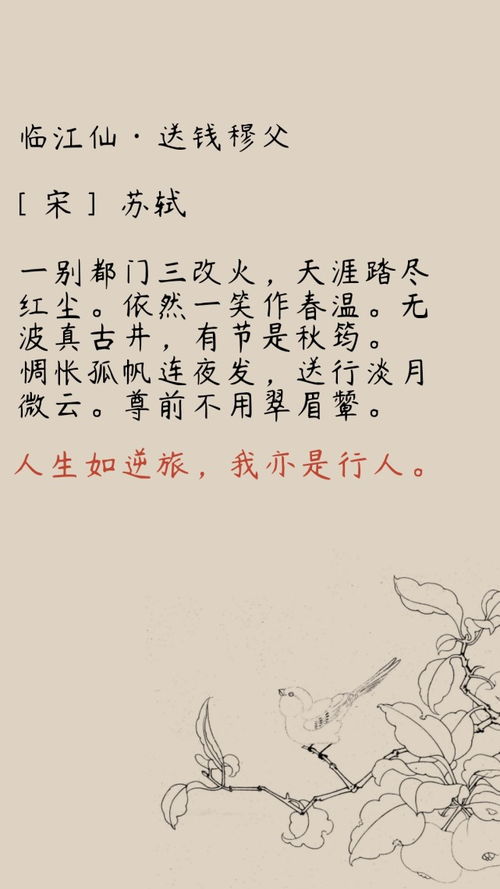 临江仙·送钱穆父
[宋] 苏轼
一别都门三改火，天涯踏尽
红尘。依然一笑作春温。无
波真古井，有节是秋筠。
惆怅孤帆连夜发，送行淡月
微云。尊前不用翠眉颦。
人生如逆旅，我亦是行人。